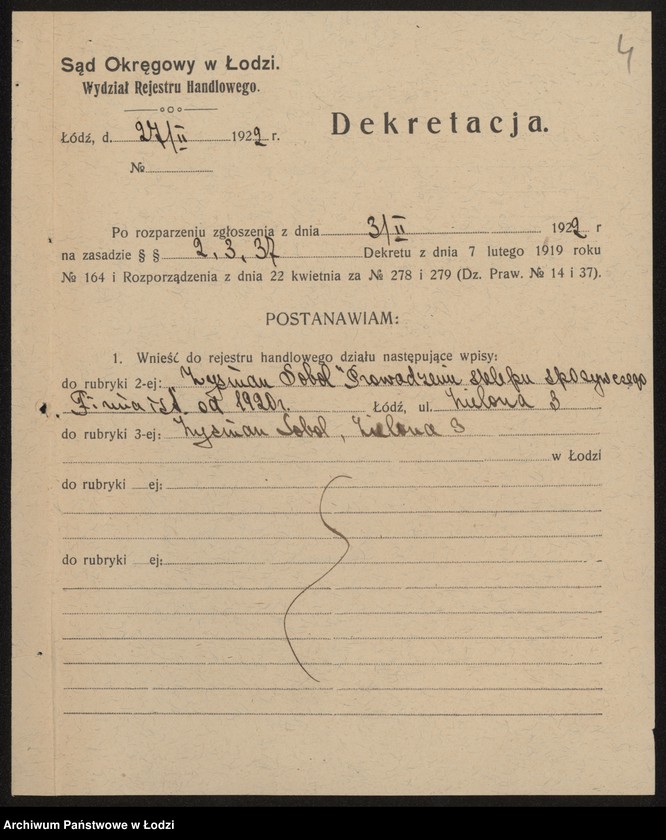 4
Sąd Okręgowy w Łodzi.
Wydział Rejestru Handlowego.
Łódź, d. 27/II 1922 r.
Dekretacja.
№
Po rozparzeniu zgłoszenia z dnia 3/II 1922 r
na zasadzie § § 2, 3, 37 Dekretu z dnia 7 lutego 1919 roku
№ 164 i Rozporządzenia z dnia 22 kwietnia za № 278 i 279 (Dz. Praw. № 14 i 37).
POSTANAWIAM:
1. Wnieść do rejestru handlowego działu następujące wpisy:
do rubryki 2-ej: „Zysman Sobol" Prowadzenie sklepu spożywczego
Firma ist. od 1920 r. Łódź, ul. Zielona 3
do rubryki 3-ej: Zysman Sobol, Zielona 3
w Łodzi
do rubryki ej:
do rubryki ej:
Archiwum Państwowe w Łodzi